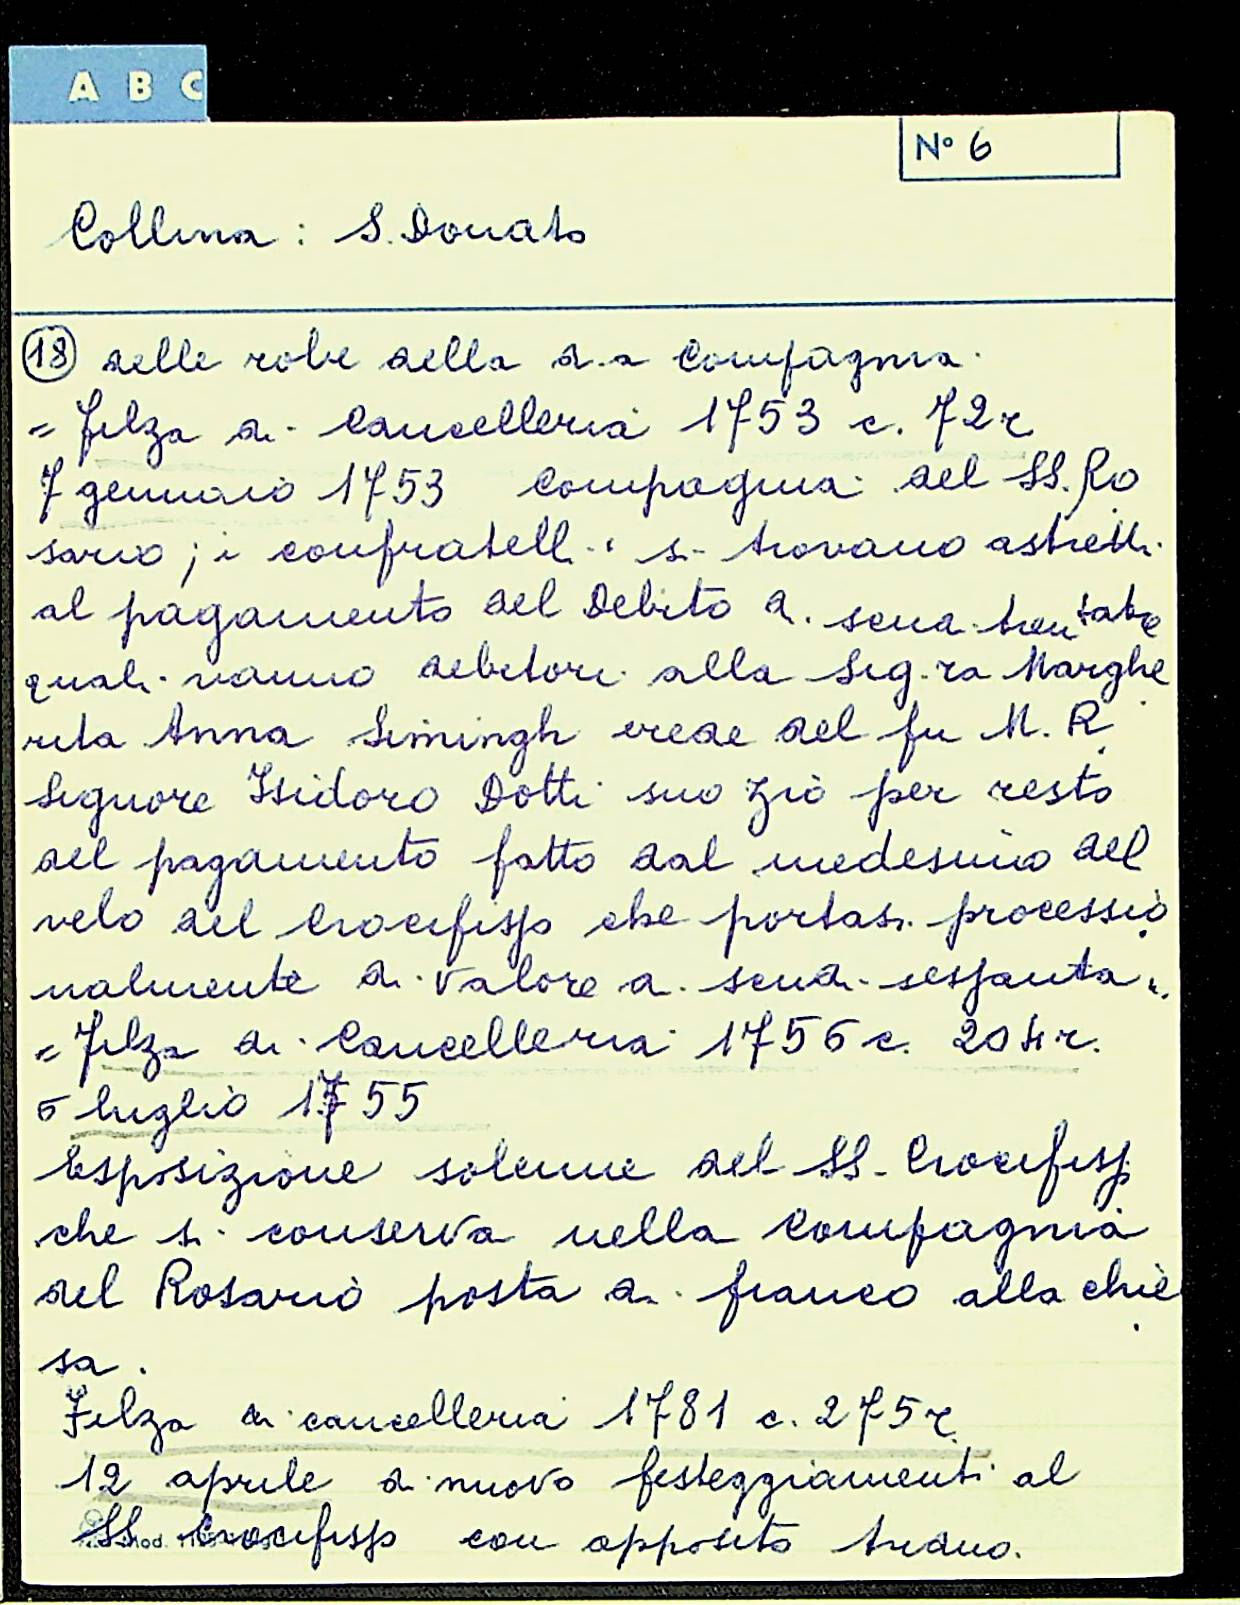 A B C
N° 6
Collina: S. Donato
18 delle robe della d.a Compagnia.
= Filza di Cancelleria 1753 c. 72r
7 gennaio 1753 Compagnia del SS. Ro
sario; i confratelli si trovano astretti
al pagamento del Debito di scudi trentatre
quali vanno debitori alla Sig.ra Marghe
rita Anna Simingh erede del fu M. R.
Signore Isidoro Dotti suo zio per resto
del pagamento fatto dal medesimo del
velo del Crocifisso che portasi processio
nalmente di valore di scudi sessanta".
= Filza di Cancelleria 1756 c. 204r.
6 luglio 1755
Esposizione solenne del SS. Crocifisso
che si conserva nella Compagnia
del Rosario posta di fianco alla chie
sa.
Filza di cancelleria 1781 c. 275r
12 aprile di nuovo festeggiamenti al
SS. Crocifisso con apposito triduo.